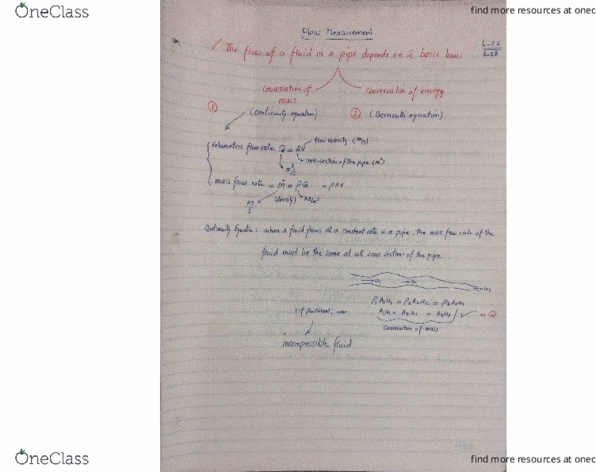 OneClass
find more resources at onec
Flow Measurement
✓ The flow of a fluid in a pipe depends on 2 basic laws
conservation of mass
conservation of energy
① (Continuity equation)
② (Bernoulli equation)
flow velocity (m/s)
Volumetric flow rate Q = AV
cross-section of the pipe (m²)
m³/s
mass flow rate = ṁ = ρQ = ρAV
kg/s
(density)
Continuity Equation: when a fluid flows at a constant rate in a pipe, the mass flow rate of the
fluid must be the same at all cross sections of the pipe
ρ₁A₁u₁ = ρ₂A₂u₂ = ρ₃A₃u₃
if
A₁u₁ = A₂u₂ = A₃u₃ ✓ = Q
Conservation of mass
incompressible fluid
OneClass
find more resources at onec